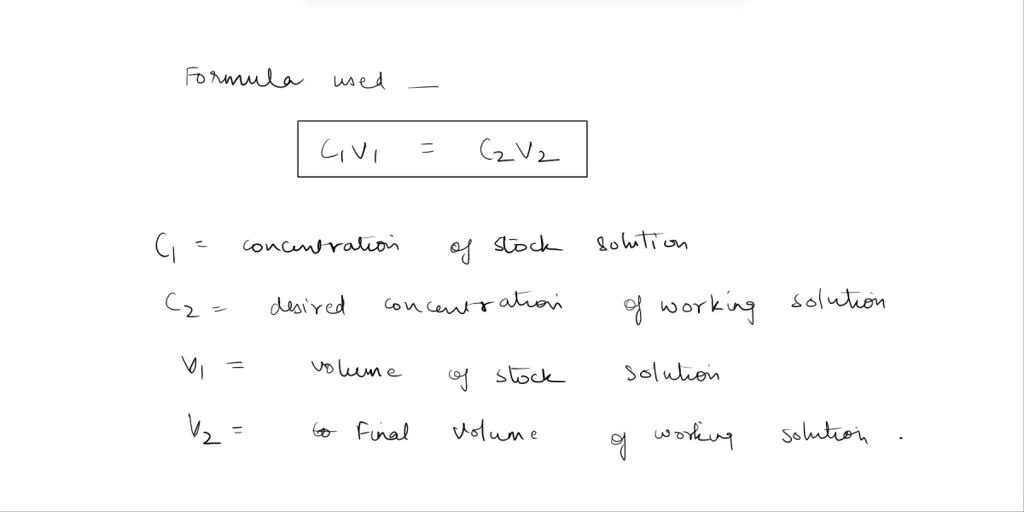 Formula used —
C₁V₁ = C₂V₂
C₁ = concentration of stock solution
C₂ = desired concentration of working solution
V₁ = volume of stock solution
V₂ = Final volume of working solution .